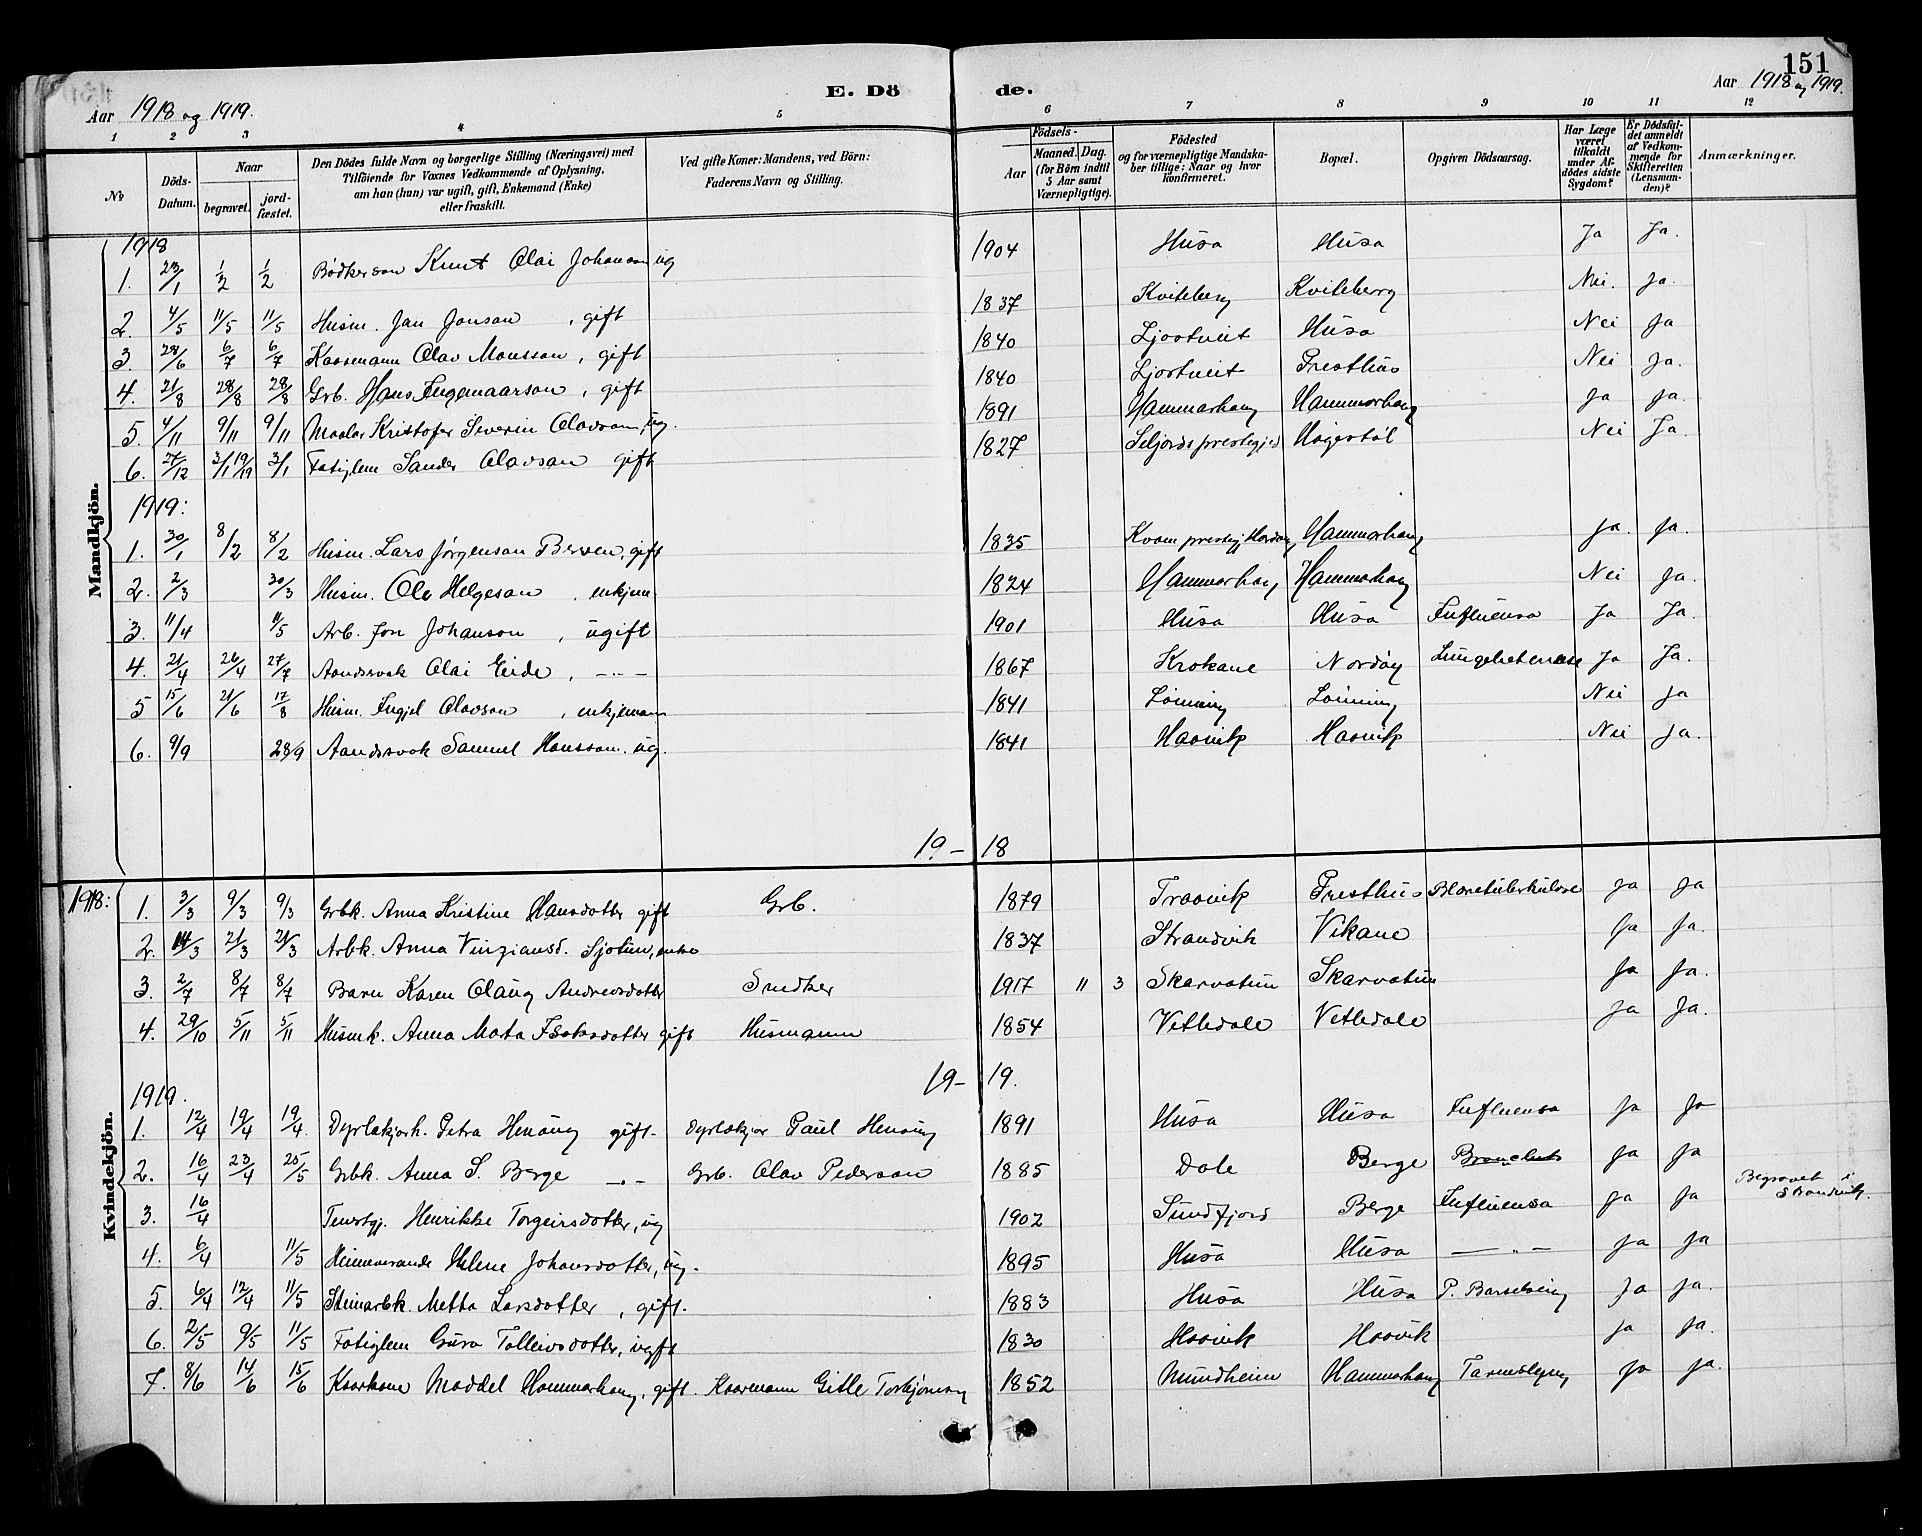 151
Aar 1918 og 1919. E. Dö de. Aar 1918 og 1919.
1 2 3 4 5 6 7 8 9 10 11 12
No
Döds-Datum.
Naar
begravet.
jord-fæstet.
Den Dödes fulde Navn og borgerlige Stilling (Næringsvei) med
Tilföiende for Voxnes Vedkommende af Oplysning,
om han (hun) var ugift, gift, Enkemand (Enke)
eller fraskilt.
Ved gifte Koner: Mandens, ved Börn:
Faderens Navn og Stilling.
Födsels-
Aar
Maaned. Dag.
(for Börn indtil
5 Aar samt
Værnepligtige).
Födested
og for værnepligtige Mandska-
ber tillige: Naar og hvor
konfirmeret.
Bopæl.
Opgiven Dödsaarsag.
Har Læge
været
tilkaldt
under Af-
dödes sidste
Sygdom?
Er Dödsfal-
det anmeldt
af Vedkom-
mende for
Skifteretten
(Lensman-
den)?
Anmærkninger.
Mandkjön.
1918
1. 23/1 1/2 1/2 Bødkerson Knut Olai Johanson ug 1904 Husa Husa Ja Ja.
2. 4/5 11/5 11/5 Husm. Jan Jonson, gift 1837 Kviteberg Kviteberg Nei. Ja.
3. 28/6 6/7 6/7 Kaarmann Olav Monsson, gift 1840 Ljostveit Husa Nei Ja
4. 21/8 28/8 28/8 Grb. Hans Ingemaarson, gift 1840 Ljostveit Presthus Nei Ja.
5. 4/11 9/11 9/11 Maalar Kristofer Severin Olavson, ug. 1891 Hammarhaug Hammarhaug Ja Ja.
6. 27/12 3/1 19/19 3/1 Fatiglem Sander Olavson gift 1827 Seljords prestegjed Hagestøl Nei Ja.
1919:
1. 30/1 8/2 8/2 Husm. Lars Jørgenson Berven, gift 1835 Kvam prestegj Hordan Hammarhaug Ja. Ja.
2. 2/3 30/3 Husm. Ole Helgeson, enkjem. 1824 Hammarhaug Hammarhaug Nei Ja.
3. 11/4 11/5 Arb. Jon Johanson, ugift 1901 Husa Husa Influensa Ja Ja.
4. 21/4 26/4 27/7 Aandssvak Olai Eide, -"- 1867 Krokane Nordøy Lungebetenese Ja Ja.
5 15/6 21/6 17/8 Husm. Ingjel Olavson, enkjemann 1841 Lønning Lønning Nei Ja
6. 9/9 28/9 Aandssvak Samuel Hansson. ug. 1841 Haavik Haavik Nei Ja.
19- 18
Kvindekjön.
1918:
1. 3/3 9/3 9/3 Grbk. Anna Kristine Hansdotter gift Grb. 1879 Traavik Presthus Blæretuberkulose Ja Ja
2. 14/3 21/3 21/3 Arbk. Anna Vinziansd. Sjotun, enke 1837 Strandvik Vikane Ja Ja.
3. 2/7 8/7 8/7 Barn Karen Olaug Andreasdotter Snedker 1917 11 3 Skarvatun Skarvatun Ja Ja.
4. 29/10 5/11 5/11 Husmk. Anna Marta Isaksdotter gift Husmann 1854 Vetledale Vetledale Ja Ja.
19- 19.
1919.
1. 12/4 19/4 19/4. Dyrlækjark. Petra Henøug gift. Dyrlækjar Paul Henøug 1891 Husa Husa Influensa Ja Ja
2. 16/4 23/4 25/5 Grbk. Anna S. Berge -"- Grb. Olav Pederson 1885 Dale Berge Ja Ja
3. 16/4 Tenstgj. Henrikke Torgeirsdotter, ug 1902 Sundfjord Berge Influensa Ja Ja Begravet i Strandvik.
4. 6/4 11/5 Heimeverande Helene Johansdotter, ug. 1895 Husa Husa -"- Ja Ja
5. 6/4 12/4 11/5 Steinarbk. Metta Larsdotter, gift. 1883 Husa Husa P. Barselseng Ja Ja.
6. 2/5 9/5 11/5 Fatiglem Guro Tolleivsdotter, ugift 1830 Haavik Haavik Ja Ja.
7. 8/6 14/6 15/6 Kaarkone Maddel Hammarhaug, gift. Kaarmann Gitle Torbjørnson 1852 Mundheim Hammarhaug Tarmslyng Ja Ja.